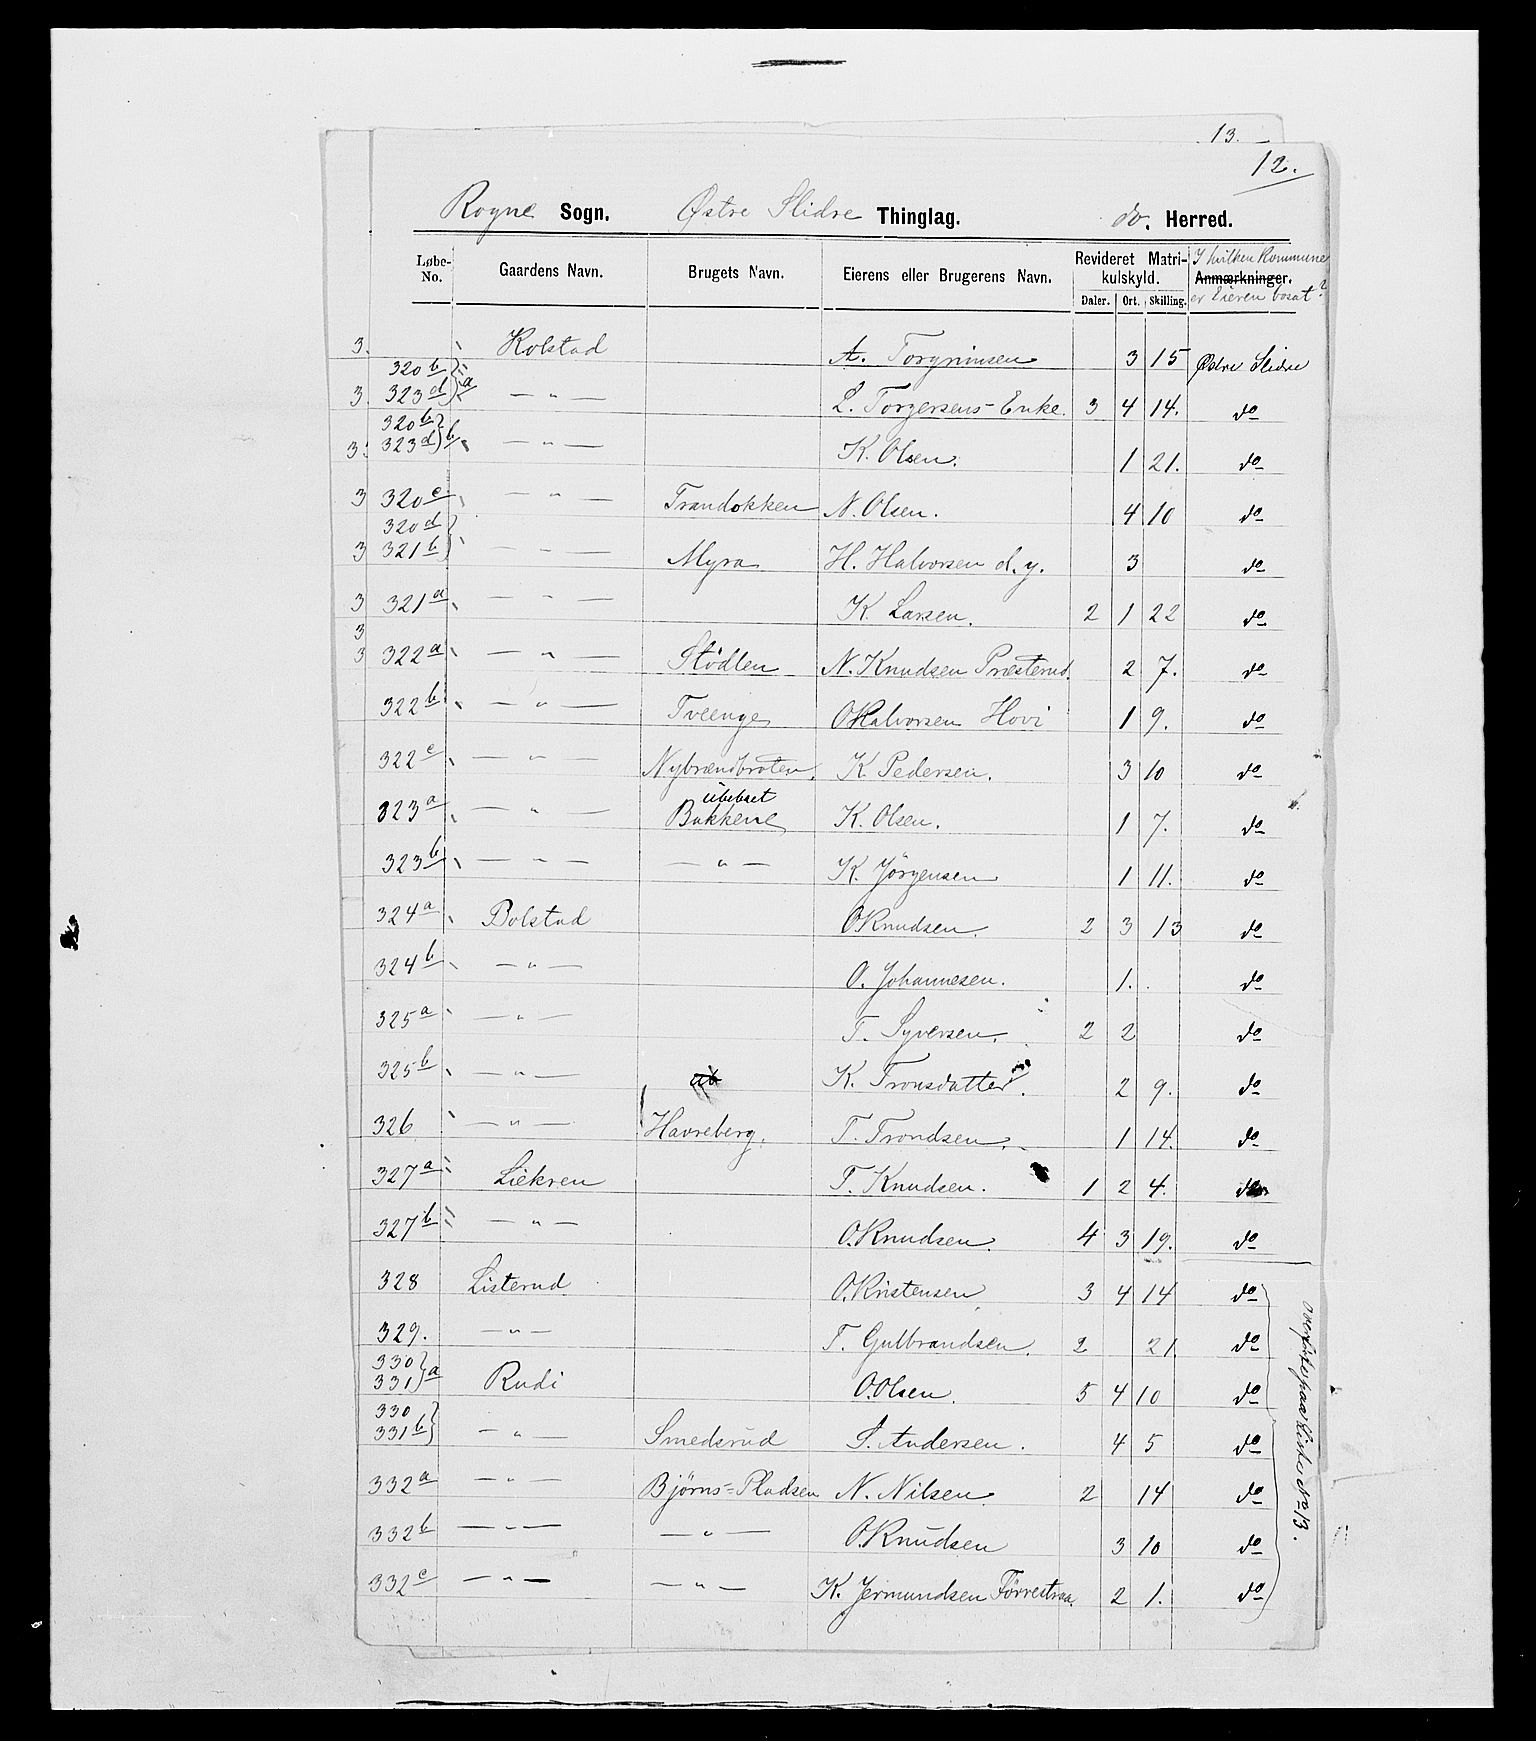 13.
12.
Rogne Sogn. Østre Slidre Thinglag. do. Herred.
Løbe-No. Gaardens Navn. Brugets Navn. Eierens eller Brugerens Navn. Revideret Matrikulskyld. Anmærkninger.
I hvilken Kommune er Eieren bosat?
Daler. Ort. Skilling.
3. Kolstad A. Torgrimsen 3 15 Østre Slidre
320 b
3. 323 d } a — " — L. Torgersens-Enke. 3 4 14. do
320 b
3. 323 d } b — " — K. Olsen. 1 21. do
3 320 c — " — Trandokken N. Olsen. 4 10 do
320 d
3 321 b } — " — Myra H. Halvorsen d.y. 3 do
3 321 a — " — K. Larsen. 2 1 22 do
3
3 322 a — " — Stödlen N. Knudsen Præsterud. 2 7. do
322 b — " — Tveenge O Halvorsen Hovi 1 9. do
322 c — " — Nybrændbraten. K. Pedersen. 3 10 do
ubeboet
323 a — " — Bakkene K. Olsen. 1 7. do
323 b — " — — " — K. Jörgensen 1 11. do
324 a Bolstad O Knudsen. 2 3 13 do
324 b — " — O. Johannesen. 1. do
325 a — " — T. Syversen. 2 2 do
325 b — " — K. Tronsdatter. 2 9. do
326 — " — Havreberg. T. Trondsen. 1 14. do
327 a Liekren T. Knudsen. 1 2 4. do
327 b — " — O. Knudsen. 4 3 19. do
328 Listerud O. Kristensen 3 4 14 do
329. — " — T. Gulbrandsen. 2 21 do
330
331 } a Rudi O. Olsen. 5 4 10 do
330
331 b } — " — Smedsrud S. Andersen. 4 5 do
332 a — " — Björns-Pladsen N. Nilsen. 2 14 do
332 b — " — — " — O. Knudsen 3 10 do
332 c — " — — " — K. Jermundsen Förrestraa. 2 1. do
overføres paa Liste No 13.